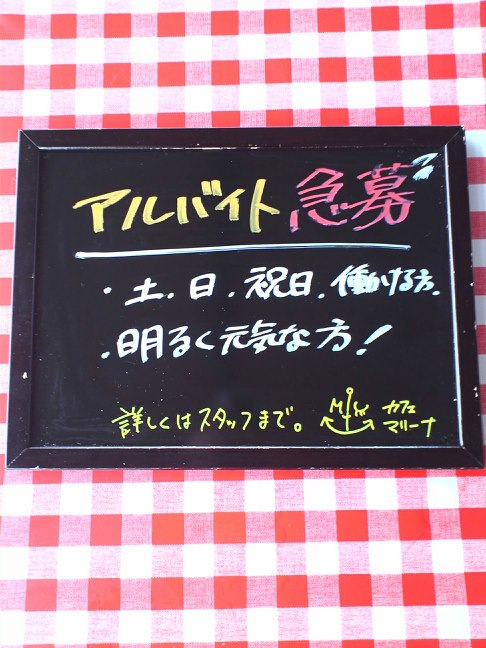 アルバイト急募
・土.日.祝日.働ける方.
・明るく元気な方!
詳しくはスタッフまで。
カフェ
マリーナ